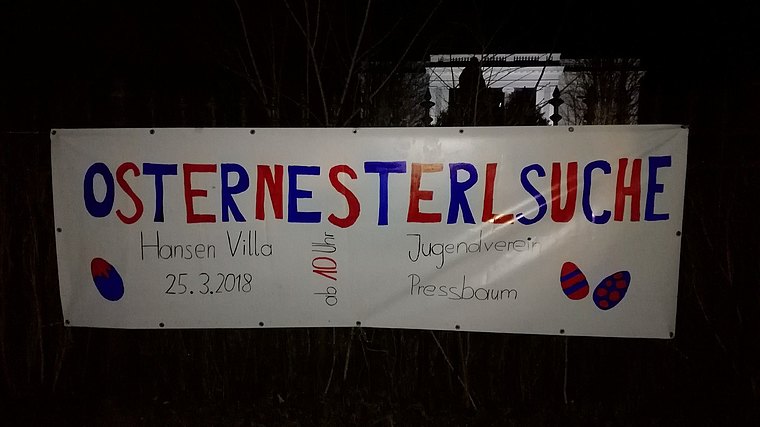 OSTERNESTERLSUCHE
Hansen Villa
25.3.2018
ab 10 Uhr
Jugendverein
Pressbaum